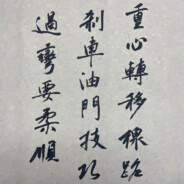 重心轉移線路
剎車油門技巧
過彎要柔順